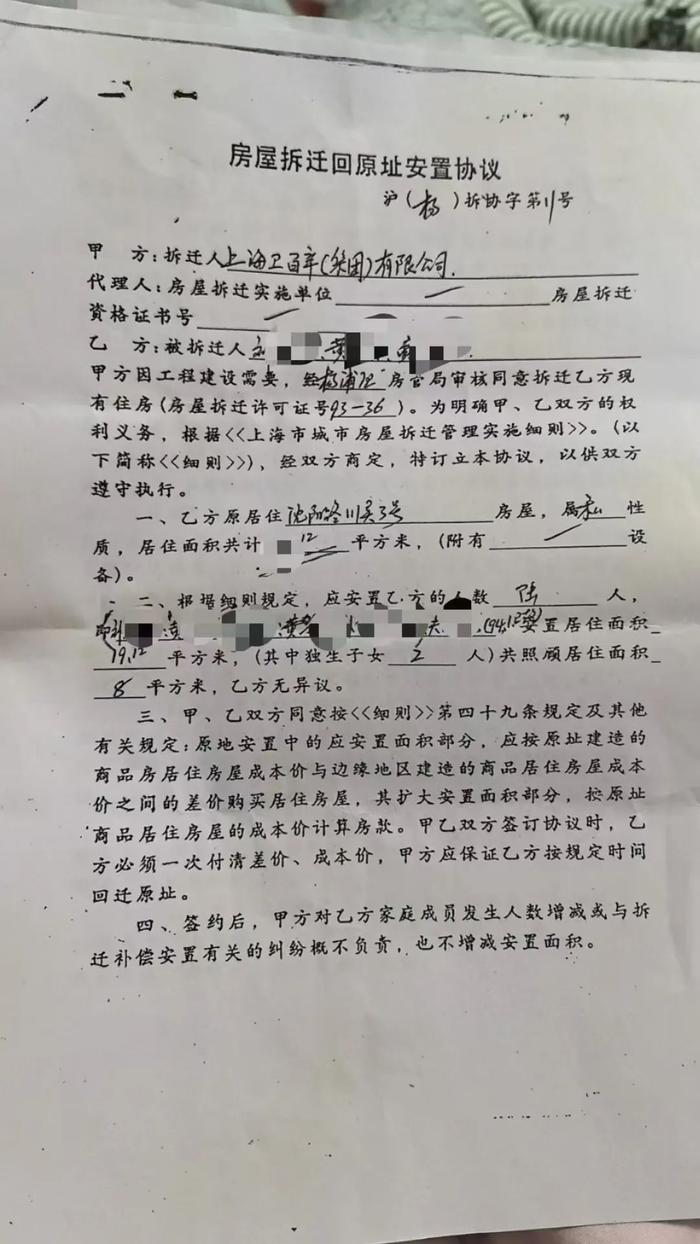 房屋拆迁回原址安置协议
沪(杨)拆协字第11号
甲 方:拆迁人上海卫百辛(集团)有限公司.
代理人:房屋拆迁实施单位 房屋拆迁
资格证书号
乙 方:被拆迁人 黄
甲方因工程建设需要,经杨浦区房管局审核同意拆迁乙方现
有住房(房屋拆迁许可证号93-36)。为明确甲、乙双方的权
利义务,根据<<上海市城市房屋拆迁管理实施细则>>。(以
下简称<<细则>>),经双方商定,特订立本协议,以供双方
遵守执行。
一、乙方原居住沈阳路 号 房屋,属私性
质,居住面积共计 12 平方米,(附有 设
备)。
二、根据细则规定,应安置乙方的人数 人,
安置居住面积
79.12平方米,(其中独生子女2人)共照顾居住面积
8平方米,乙方无异议。
三、甲、乙双方同意按<<细则>>第四十九条规定及其他
有关规定:原地安置中的应安置面积部分,应按原址建造的
商品房居住房屋成本价与边缘地区建造的商品居住房屋成本
价之间的差价购买居住房屋,其扩大安置面积部分,按原址
商品居住房屋的成本价计算房款。甲乙双方签订协议时,乙
方必须一次付清差价、成本价,甲方应保证乙方按规定时间
回迁原址。
四、签约后,甲方对乙方家庭成员发生人数增减或与拆
迁补偿安置有关的纠纷概不负责,也不增减安置面积。